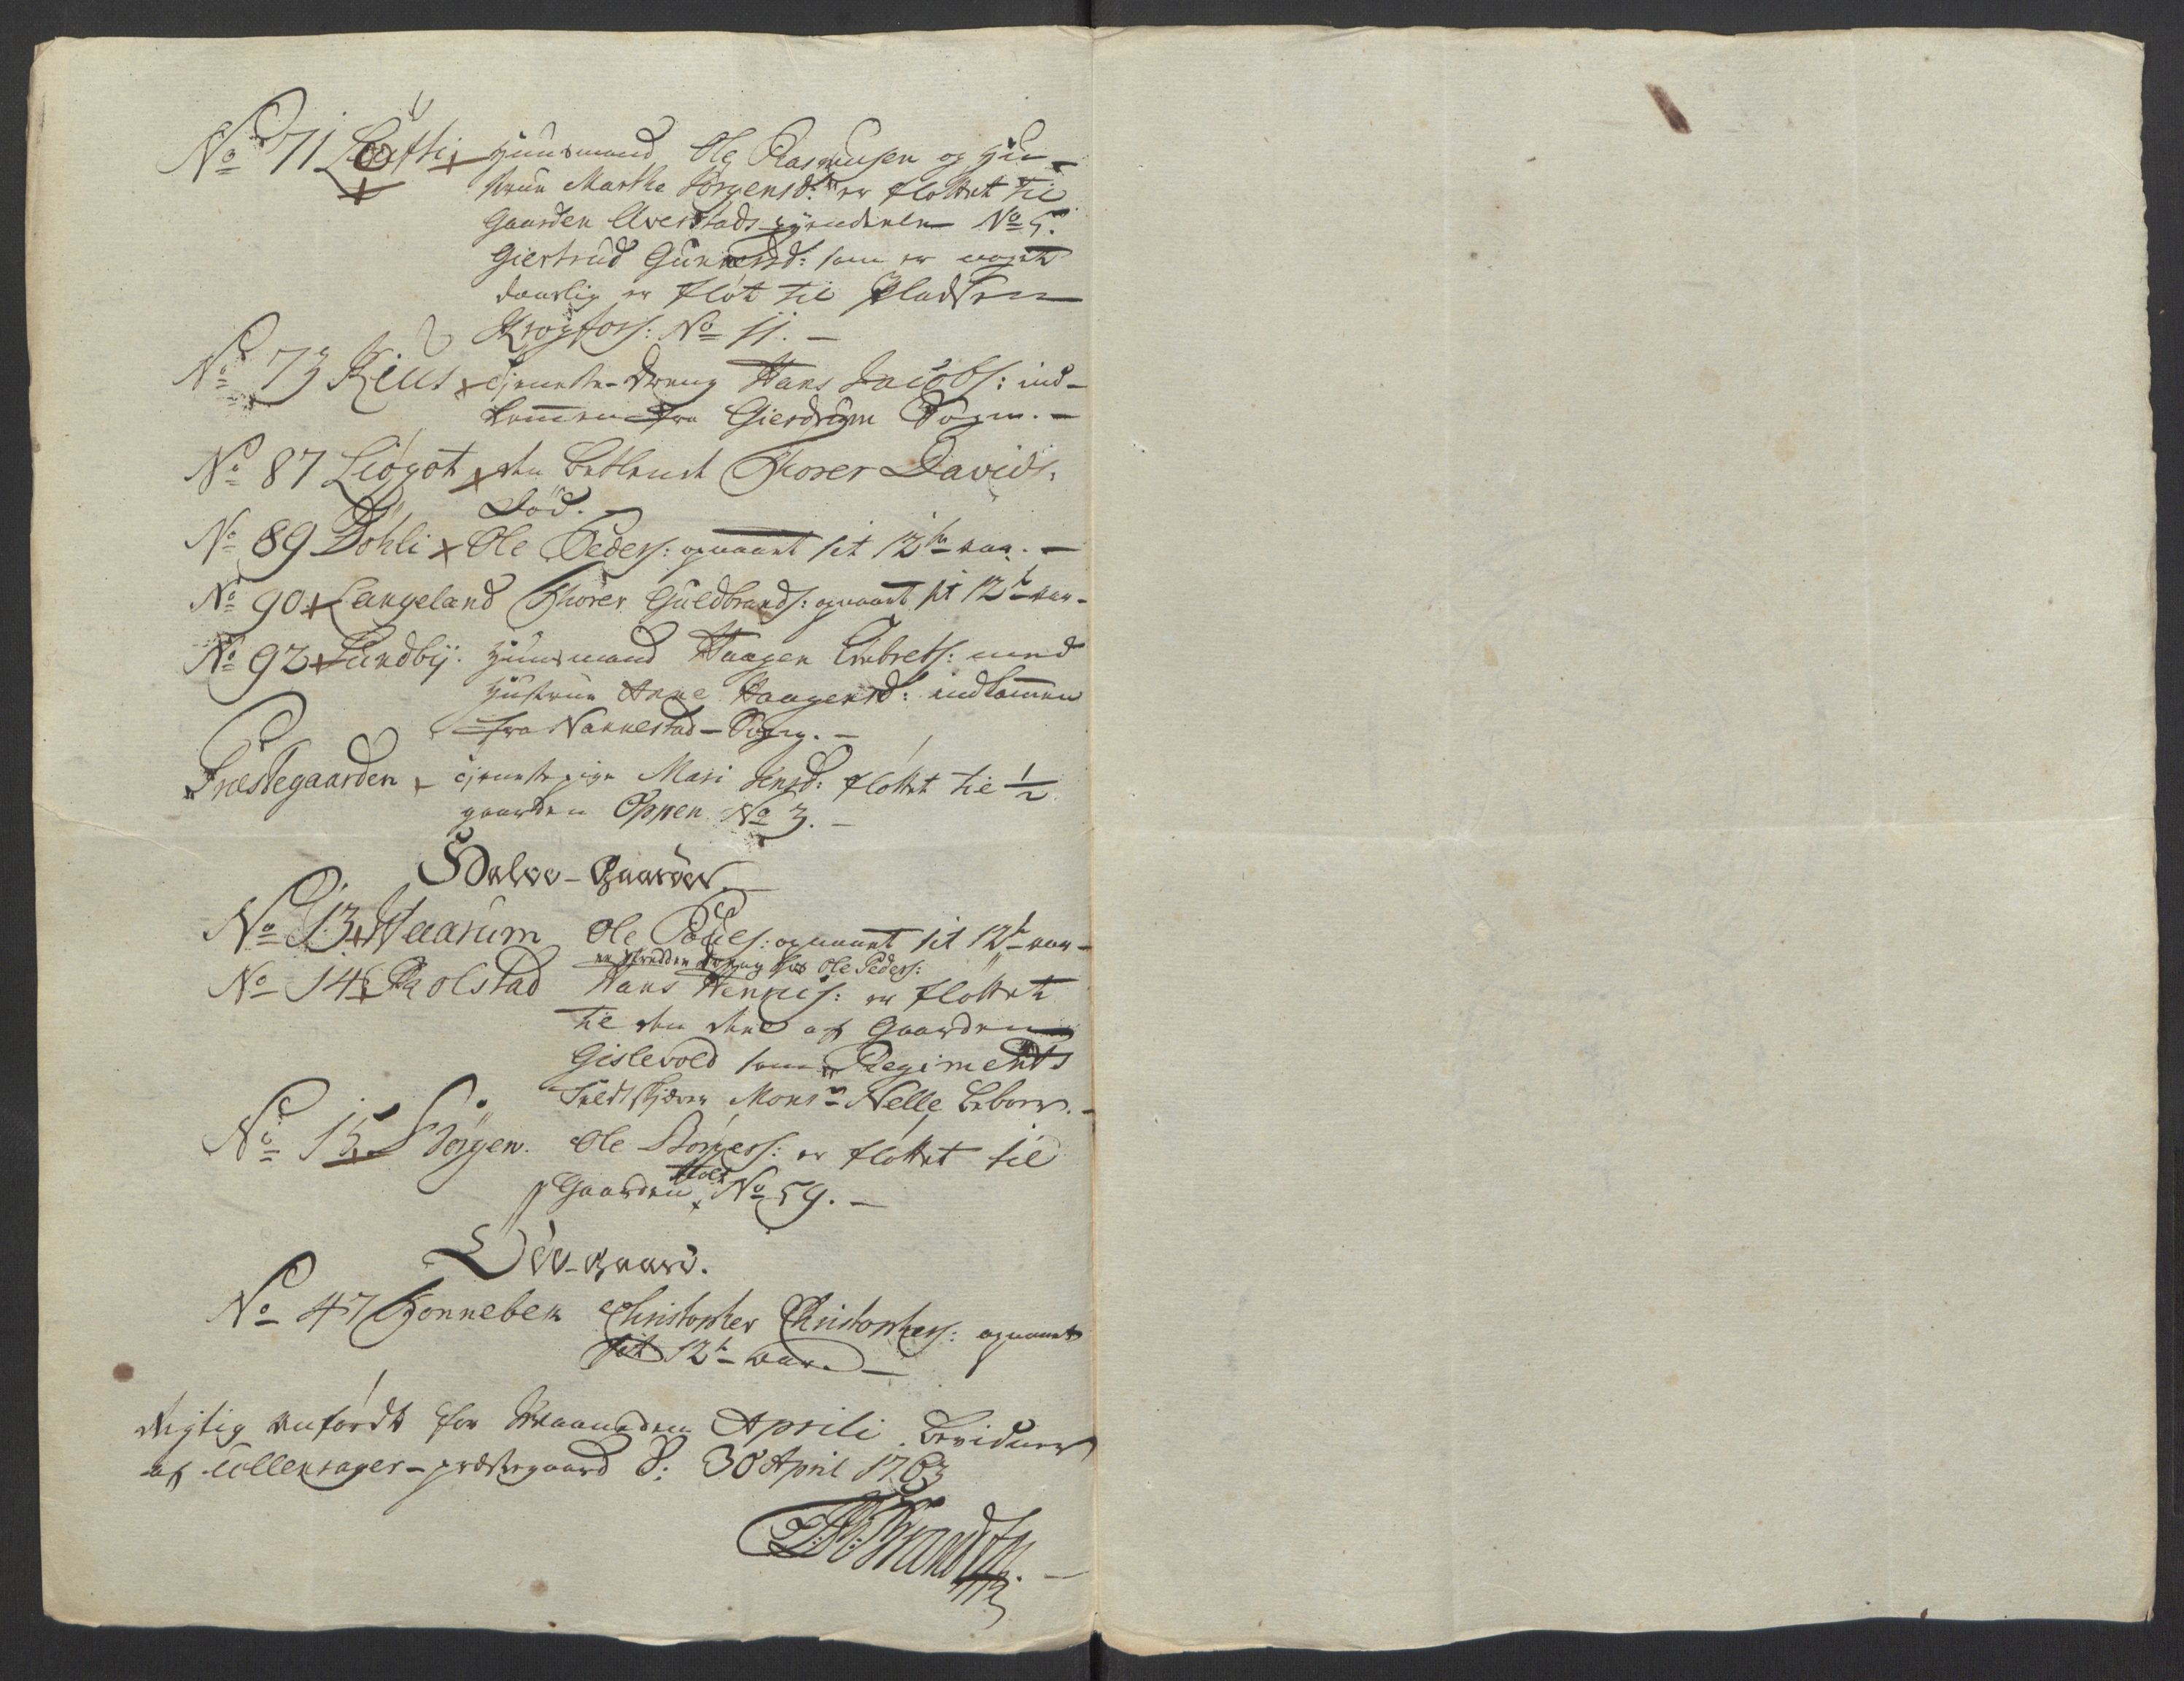 No 71 Huusmand Ole Rasmusen og Hu-
strue Marthe Jörgensd: er flöttet til
Gaarden Averstads No 5.
Giertrud Gunnersd: som er noget
daarlig er flöt til Pladsen
Krogfoss: No 11. -
No 73 Kieus tieneste-dreng Hans Jacobs: ind-
kommen fra Gierdrum Sogn. -
No 87 Liögot den Thorer Davids.
död.
No 89 Döhli Ole Peders: opnaaet sit 12te aar. -
No 90 Langeland Thorer Guldbrands: opnaaet sit 12te aar-
No 92 Lundbÿ. Huusmand Haagen Embrets: med
Hustrue Anne Haagensd: indkommen
fra Nannestad-Sogn. -
Præstegaarden tienestepige Mari Jensd: flöttet til 1/2
gaarden Oppen No 3. -
Halve-Gaarder.
No 13 Haarum Ole Poules: opnaaet sit 12te aar-
No 14 Kolstad dreng hos Ole Peders:
Hans Hennies: er flöttet
til den deel af Gaarden
Gislevold som Regiments
Feldtskiærer Monsr Nelle beboer. -
No 15 Börgen. Ole Börgers: er flöttet til
Gaarden Holt No 59. -
Öde-gaard.
No 47 Tonnebek Christopher Christophers: opnaaet
sit 12te aar. -
Rigtig anfördt for Maaneden Aprili Bevidner
af Ullensager-præstegaard d: 30 April 1763